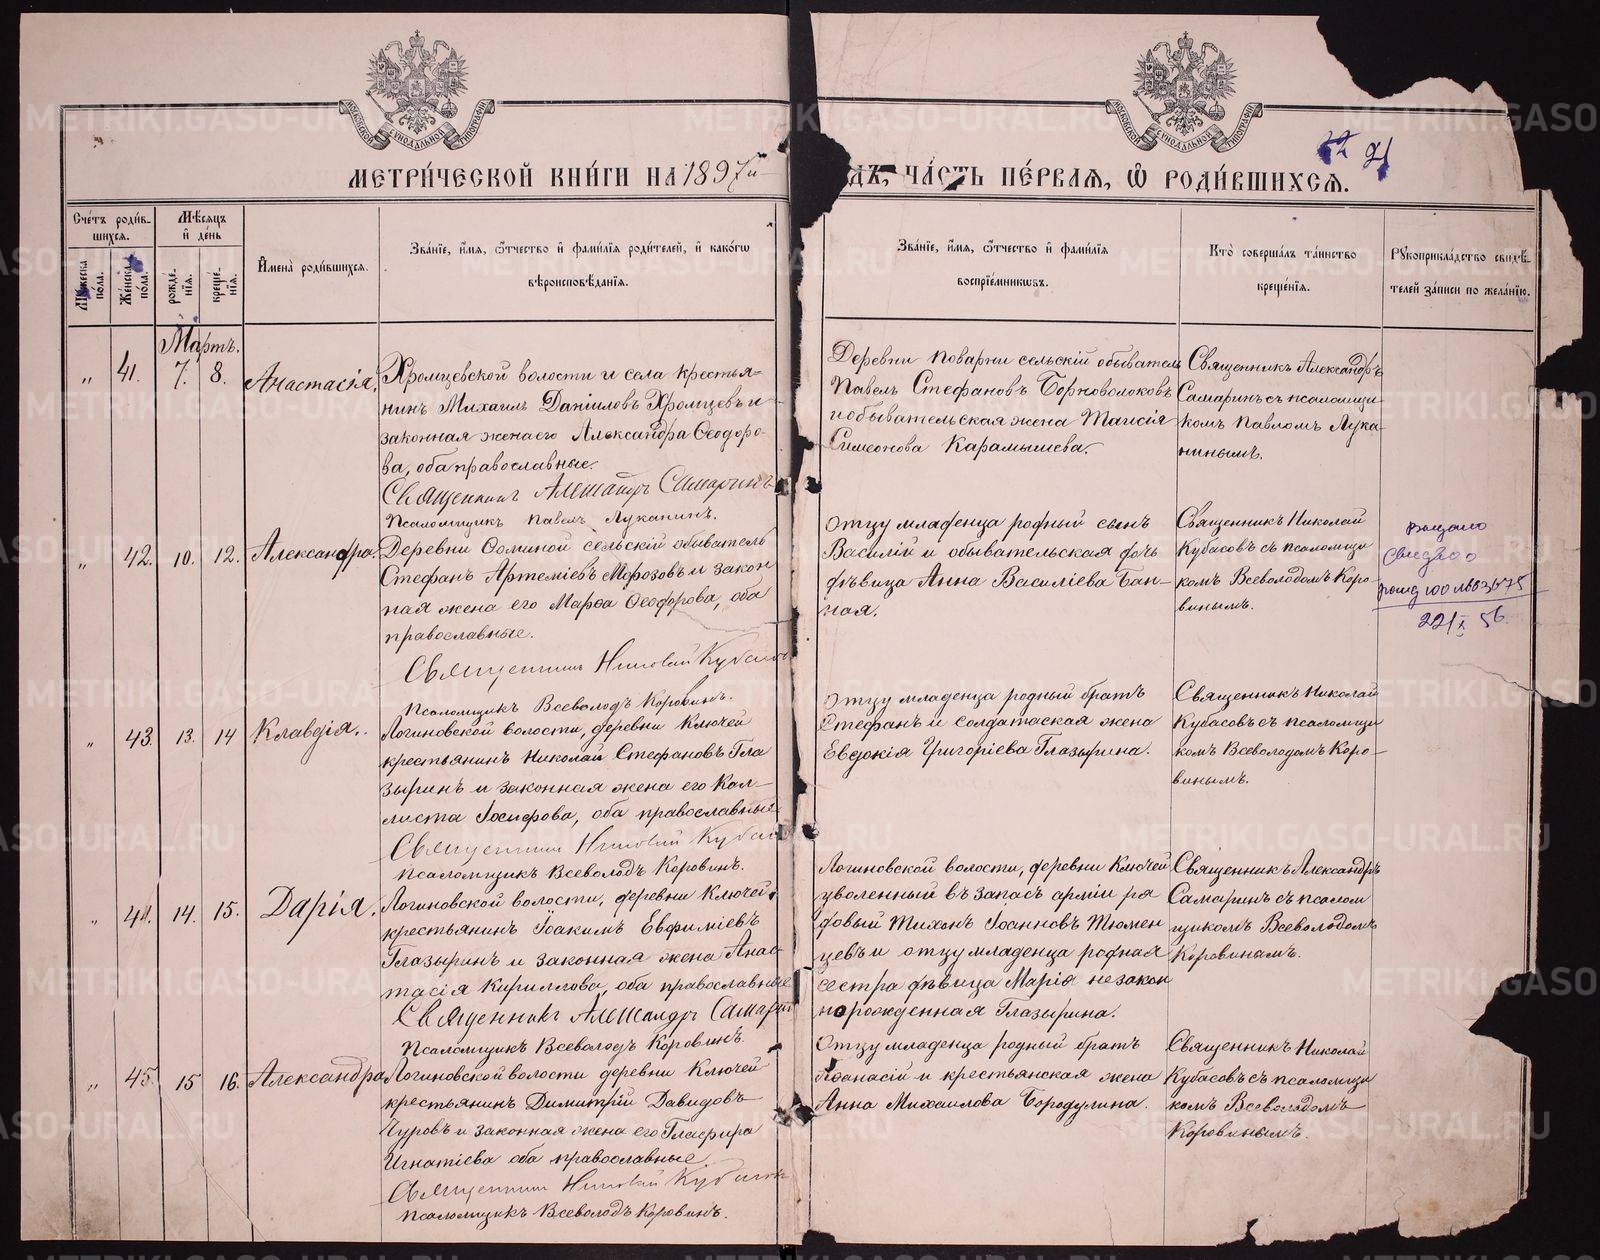 МЕТРИ́ЧЕСКОЙ КНИ́ГИ НА 1897й
ДЪ, ЧА́СТЬ ПЕ́РВАЯ, Ѡ РОДИ́ВШИХСЯ.
Сче́тъ роди́в-
шихся.
Мѣ́сяцъ
и҆ де́нь
Му́жеска по́ла.
Же́нска по́ла.
рожде́-
нїя.
креще́-
нїя.
И҆мена̀ роди́вшихся.
Зва́нїе, и҆́мя, ѻ҆́тчество и҆ фами́лїя роди́телей, и҆ како́гѡ
вѣроисповѣ́данїя.
Зва́нїе, и҆́мя, ѻ҆́тчество и҆ фами́лїя
воспрїе́мниковъ.
Кто̀ соверша́лъ та́инство
креще́нїя.
Рꙋкоприкла́дство свидѣ́-
телей за́писи по жела́нїю.
Мартъ.
„ 41. 7. 8. Анастасія.
Хромцевской волости и села крестья-
нинъ Михаилъ Даніиловъ Хромцевъ и
законная жена его Александра Ѳеодоро-
ва, оба православные.
Священникъ Александръ Самаринъ
Псаломщикъ Павелъ Луканинъ.
Деревни Поварни сельскій обыватель
Павелъ Стефановъ Борноволоковъ
и обывательская жена Таисія
Симеонова Карамышева.
Священникъ Александръ
Самаринъ съ псаломщи-
комъ Павломъ Лука-
нинымъ.
„ 42. 10. 12. Александра.
Деревни Ѳоминой сельскій обыватель
Стефанъ Артеміевъ Морозовъ и закон
ная жена его Марѳа Ѳеодорова, оба
православные.
Священникъ Николай Кубасовъ
Псаломщикъ Всеволодъ Коровинъ.
Отцу младенца родный сынъ
Василій и обывательская дочь
дѣвица Анна Василіева Бан-
ная.
Священникъ Николай
Кубасовъ съ псаломщи
комъ Всеволодомъ Коро-
винымъ.
221 X 56
„ 43. 13. 14 Клавдія.
Логиновской волости, деревни Ключей
крестьянинъ Николай Стефановъ Гла
зыринъ и законная жена его Кал-
листа Іосифова, оба православные
Священникъ Николай Кубасовъ
Псаломщикъ Всеволодъ Коровинъ.
Отцу младенца родный братъ
Стефанъ и солдатская жена
Евдокія Григоріева Глазырина.
Священникъ Николай
Кубасовъ съ псаломщи
комъ Всеволодомъ Коро-
винымъ.
„ 44. 14. 15. Дарія.
Логиновской волости, деревни Ключей,
крестьянинъ Іоакимъ Евфиміевъ
Глазыринъ и законная жена Анас-
тасія Кириллова, оба православные
Священникъ Александръ Самаринъ
Псаломщикъ Всеволодъ Коровинъ.
Логиновской волости, деревни Ключей
уволенный въ запасъ арміи ря
довый Тихонъ Іоанновъ Тюмен
цевъ и отцу младенца родная
сестра дѣвица Марія незакон
норожденная Глазырина.
Священникъ Александръ
Самаринъ съ псалом
щикомъ Всеволодомъ
Коровинымъ.
„ 45. 15 16. Александра
Логиновской волости деревни Ключей
крестьянинъ Димитрій Давидовъ
Чуровъ и законная жена его Глафира
Игнатіева оба православные
Священникъ Николай Кубасовъ
Псаломщикъ Всеволодъ Коровинъ.
Отцу младенца родный братъ
Аѳанасій и крестьянская жена
Анна Михаилова Бородулина.
Священникъ Николай
Кубасовъ съ псаломщи
комъ Всеволодомъ
Коровинымъ.
METRIKI.GASO-URAL.RU